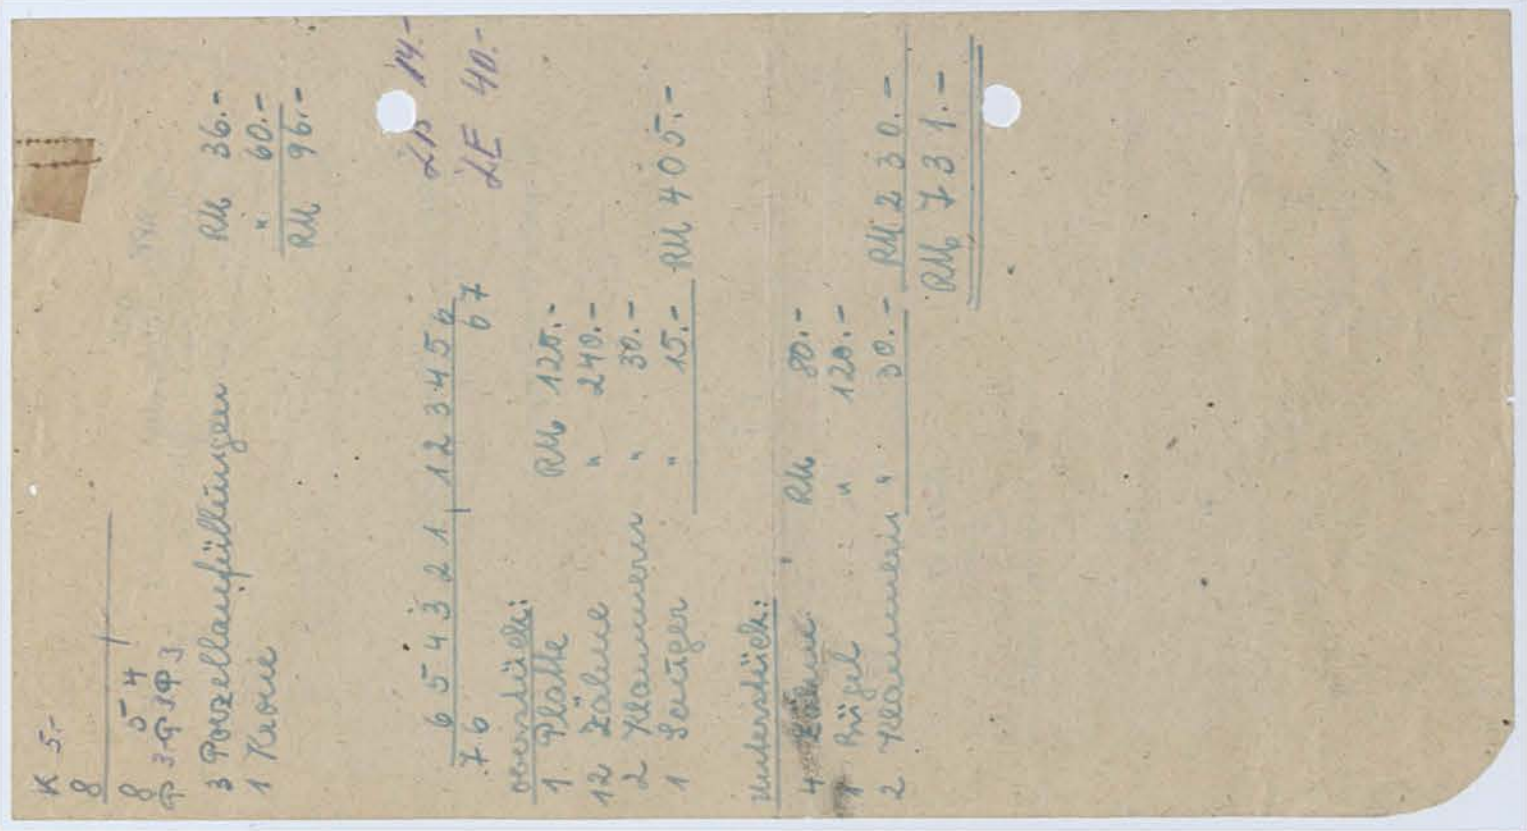 K 5.-
8
8 5 4
P 3 P 3 P 3
3 Porzellanfüllungen RM 36.-
1 Krone " 60.-
RM 96.-
ZB 14.-
6 5 4 3 2 1 | 1 2 3 4 5 6
7 6 6 7
ZE 40.-
Oberstück:
1 Platte RM 120.-
12 Zähne " 240.-
2 Klammern " 30.-
1 Sauger " 15.- RM 405.-
Unterstück:
4 Zähne RM 80.-
1 Bügel " 120.-
2 Klammern " 30.- RM 230.-
RM 731.-